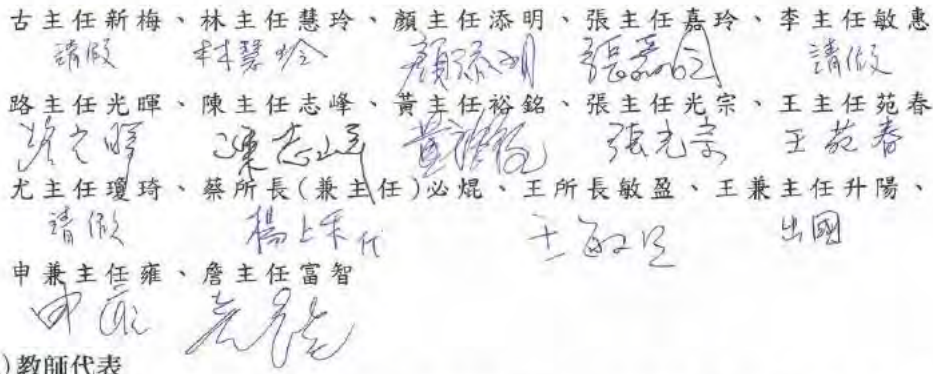 古主任新梅、林主任慧玲、顏主任添明、張主任嘉玲、李主任敏惠
請假 林慧玲 顏添明 張嘉玲 請假
路主任光暉、陳主任志峰、黃主任裕銘、張主任光宗、王主任苑春
路光暉 陳志峰 黃裕銘 張光宗 王苑春
尤主任瓊琦、蔡所長(兼主任)必焜、王所長敏盈、王兼主任升陽、
請假 楊上禾代 王敏盈 出國
申兼主任雍、詹主任富智
申雍
)教師代表